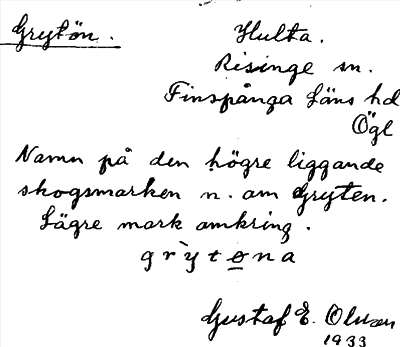 Grytön.
Hulta.
Risinge sn.
Finspånga Läns hd
Ögl
Namn på den högre liggande
skogsmarken n. om Gryten.
Lägre mark omkring.
gr&#768;yt<u>ø</u>na
Gustaf E. Olsson
1933